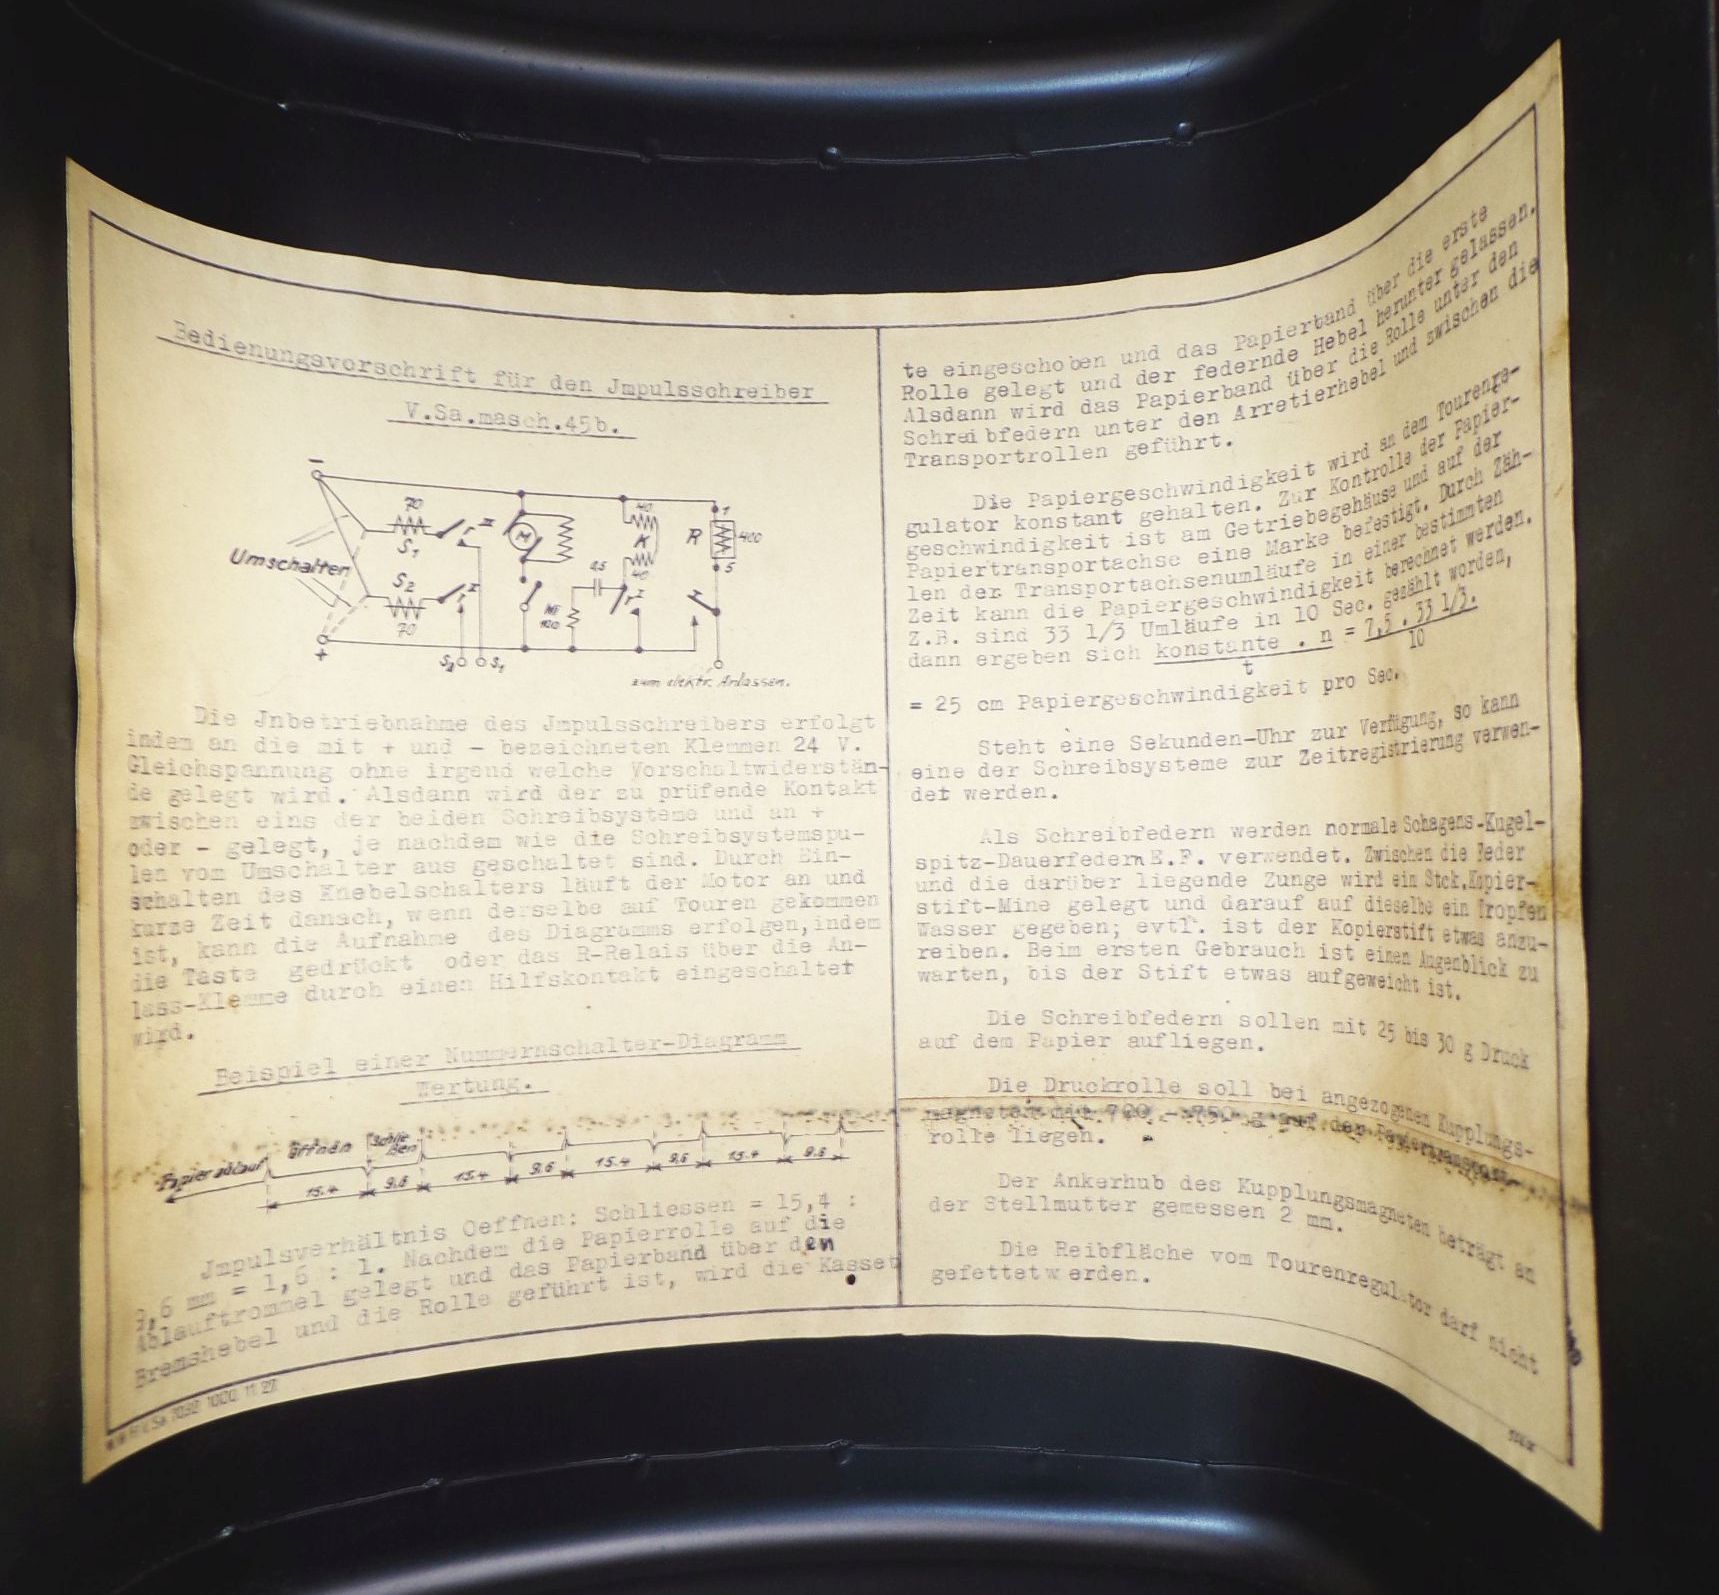 Bedienungsvorschrift für den Jmpulsschreiber
V.Sa.masch.45b.
-
70
S1
r II
M
40
K
40
1
R
400
5
Umschalten
S2
70
I
0,5
100
r I
+
S2 S1
zum elektr. Anlassen.
Die Jnbetriebnahme des Jmpulsschreibers erfolgt
indem an die mit + und - bezeichneten Klemmen 24 V.
Gleichspannung ohne irgend welche Vorschaltwiderstän-
de gelegt wird. Alsdann wird der zu prüfende Kontakt
zwischen eins der beiden Schreibsysteme und an +
oder - gelegt, je nachdem wie die Schreibsystemspu-
len vom Umschalter aus geschaltet sind. Durch Ein-
schalten des Knebelschalters läuft der Motor an und
kurze Zeit danach, wenn derselbe auf Touren gekommen
ist, kann die Aufnahme des Diagramms erfolgen, indem
die Taste gedrückt oder das R-Relais über die An-
lass-Klemme durch einen Hilfskontakt eingeschaltet
wird.
Beispiel einer Nummernschalter-Diagramm
Wertung.
Papierablauf öffnen Schlie
ßen
15.4 9.6 15.4 9.6 15.4 9.6 15.4 9.6
Jmpulsverhältnis Oeffnen: Schliessen = 15,4 :
9,6 mm = 1,6 : 1. Nachdem die Papierrolle auf die
Ablauftrommel gelegt und das Papierband über den
Bremshebel und die Rolle geführt ist, wird die Kasset
1000 11 27
te eingeschoben und das Papierband über die erste
Rolle gelegt und der federnde Hebel herunter gelassen.
Alsdann wird das Papierband über die Rolle unter den
Schreibfedern unter den Arretierhebel und zwischen die
Transportrollen geführt.
Die Papiergeschwindigkeit wird an dem Tourenre-
gulator konstant gehalten. Zur Kontrolle der Papier-
geschwindigkeit ist am Getriebegehäuse und auf der
Papiertransportachse eine Marke befestigt. Durch Zäh-
len der Transportachsenumläufe in einer bestimmten
Zeit kann die Papiergeschwindigkeit berechnet werden.
Z.B. sind 33 1/3 Umläufe in 10 Sec. gezählt worden,
dann ergeben sich konstante . n = 7,5 . 33 1/3.
t 10
= 25 cm Papiergeschwindigkeit pro Sec.
Steht eine Sekunden-Uhr zur Verfügung, so kann
eine der Schreibsysteme zur Zeitregistrierung verwen-
det werden.
Als Schreibfedern werden normale Schagens-Kugel-
spitz-Dauerfedern E.F. verwendet. Zwischen die Feder
und die darüber liegende Zunge wird ein Stck. Kopier-
stift-Mine gelegt und darauf auf dieselbe ein Tropfen
Wasser gegeben; evtl. ist der Kopierstift etwas anzu-
reiben. Beim ersten Gebrauch ist einen Augenblick zu
warten, bis der Stift etwas aufgeweicht ist.
Die Schreibfedern sollen mit 25 bis 30 g Druck
auf dem Papier aufliegen.
Die Druckrolle soll bei angezogenem Kupplungs-
magneten mit 700 - 750 g auf der Papiertransport-
rolle liegen.
Der Ankerhub des Kupplungsmagneten beträgt an
der Stellmutter gemessen 2 mm.
Die Reibfläche vom Tourenregulator darf nicht
gefettet werden.